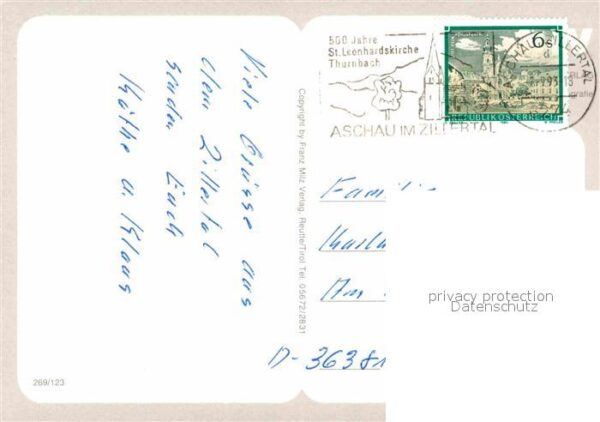 Viele Grüsse aus
dem Zillertal
senden Euch
Käthe u. Klaus
Copyright by Franz Milz Verlag, Reutte/Tirol Tel. 05672/2831
269/123
500 Jahre
St. Leonhardskirche
Thurnbach
ASCHAU IM ZILLERTAL
6 S
REPUBLIK ÖSTERREICH
ZILLERTAL
Familie
Am
D-36381
privacy protection
Datenschutz